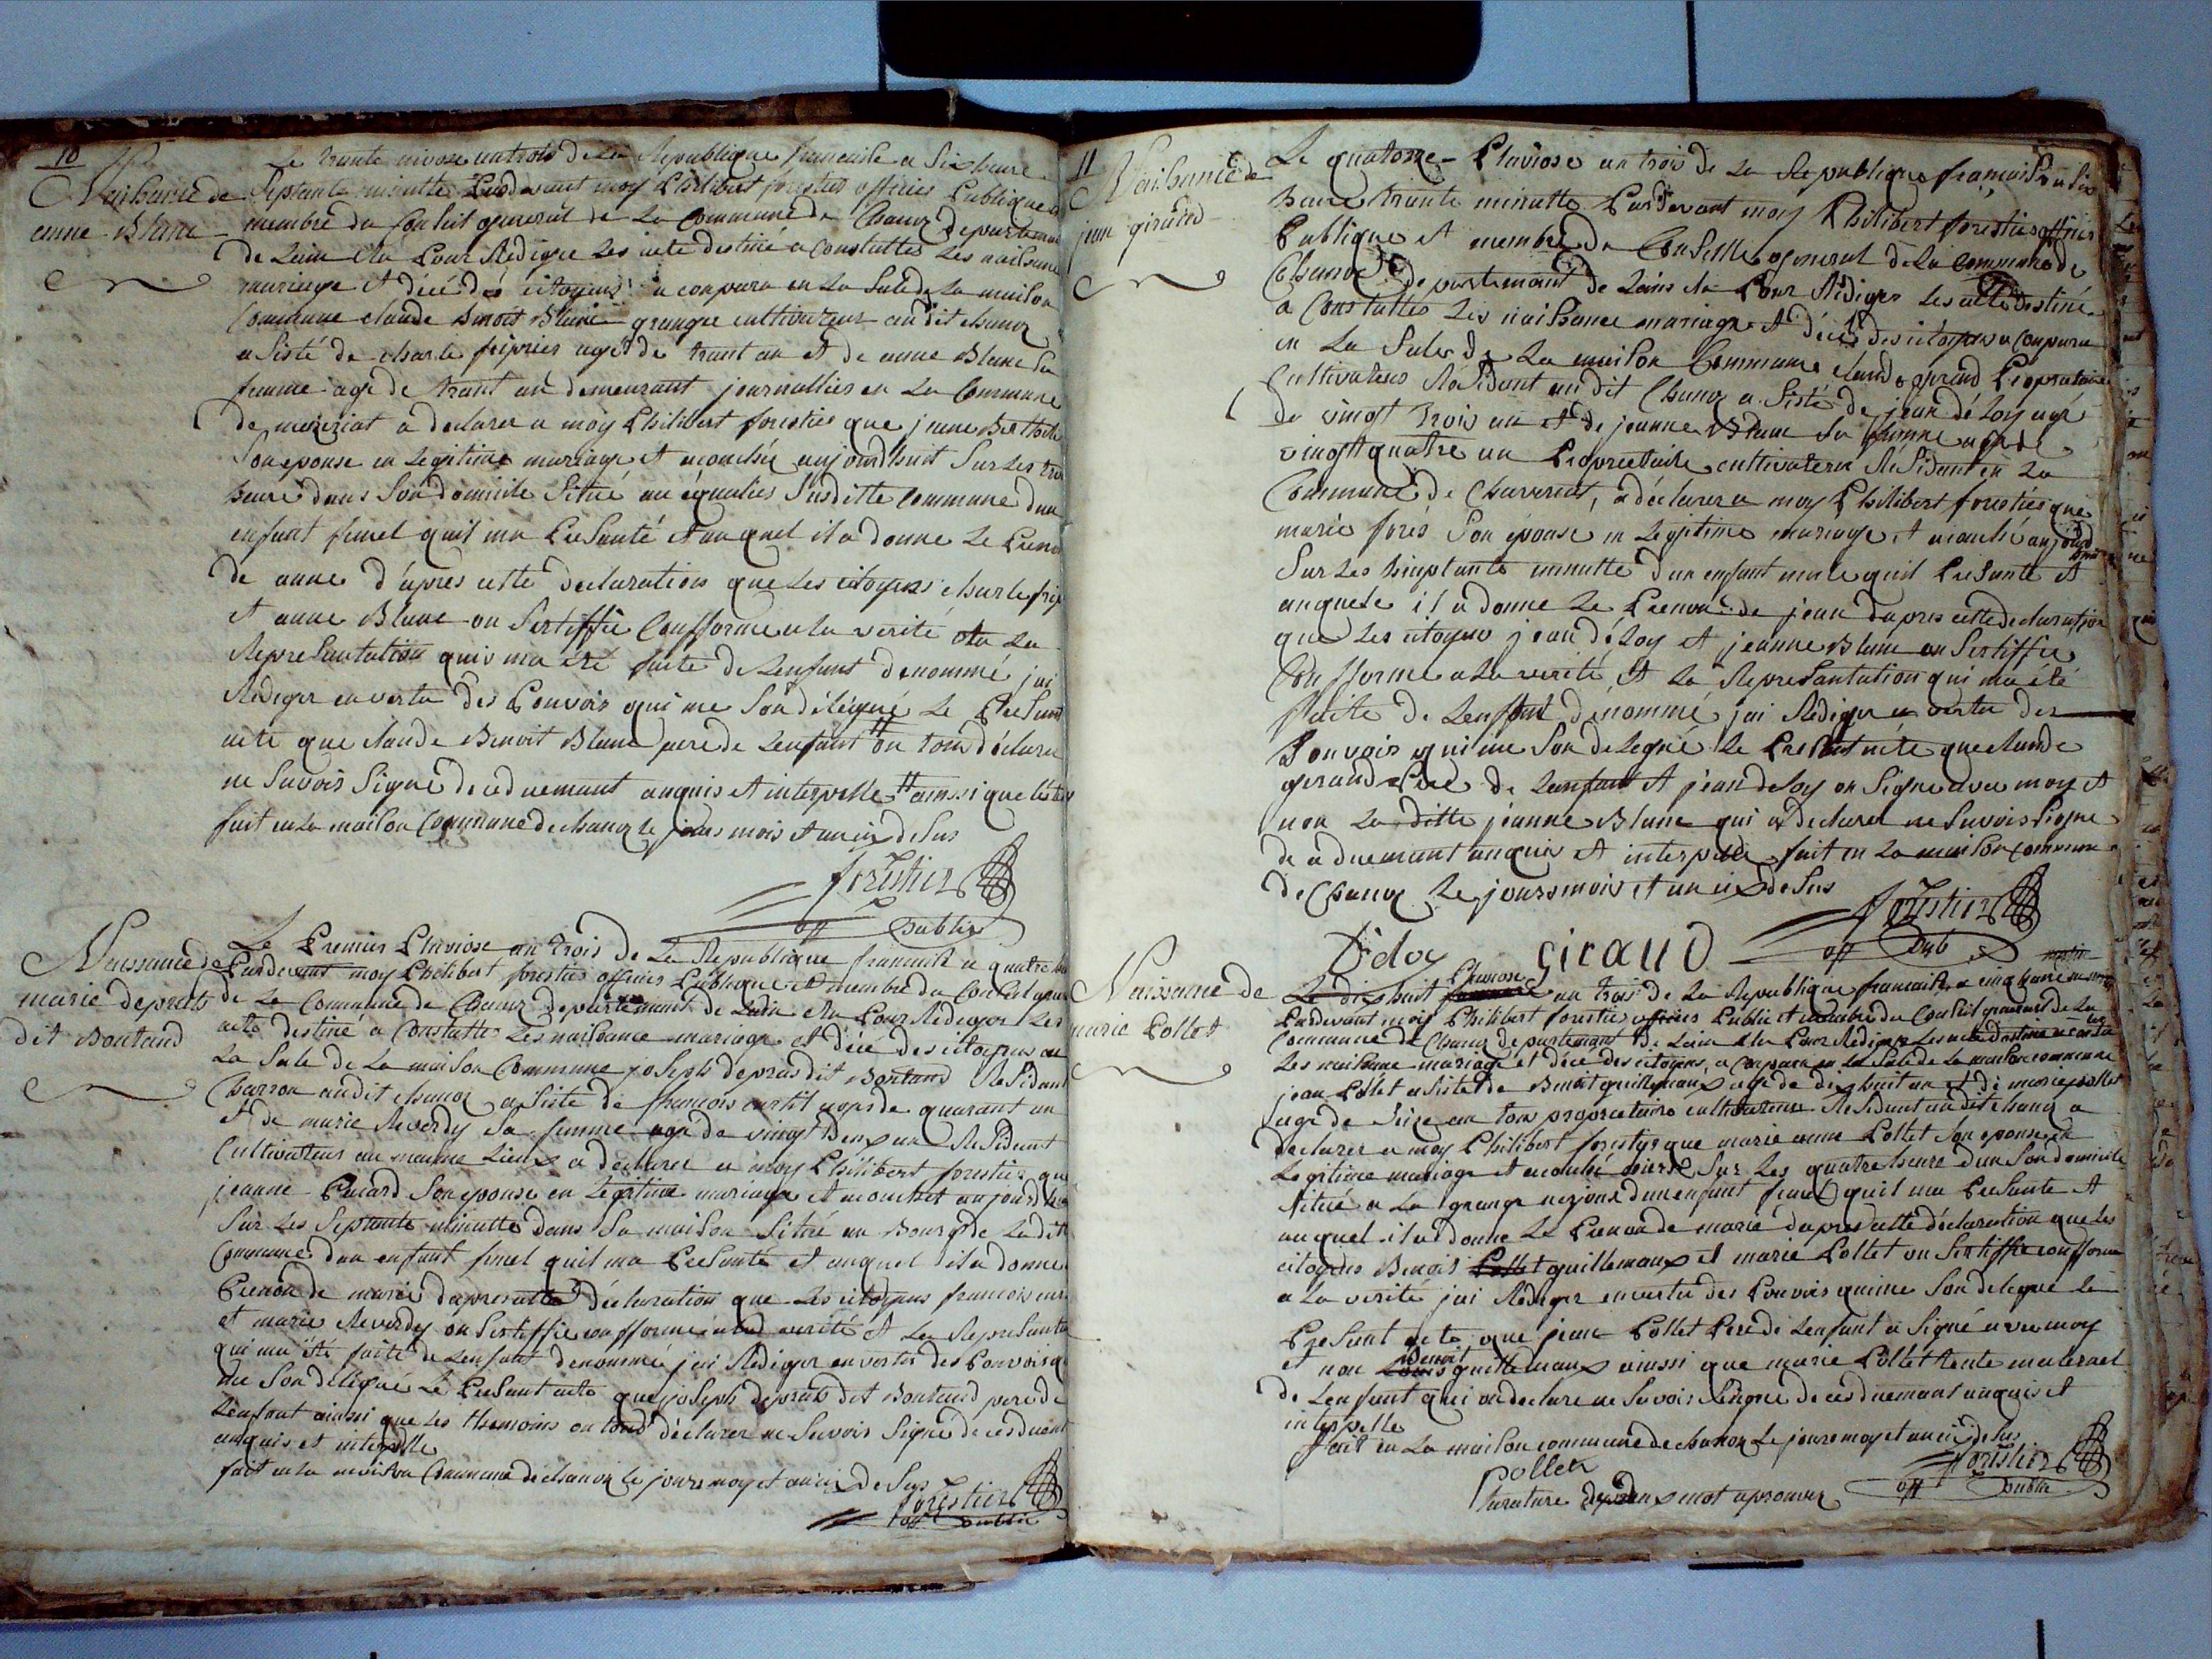 10
Naissance de
anne Blanc
Le trante nivose an trois de La Republique francaise a six heure
septante minutte Pardevant moy Philibert forestier officier Publique et
membre du Conseil general de La Commune de Chanoz departement
de Lain elu Pour Rediger Les acte destiné a constatter Les naissance
mariage et décé des citoyens a conparu en La Sale de La maison
Commune claude Benoit Blanc granger cultivateur audit chanoz
asisté de charle fripier agé de trant an et de anne Blanc Sa
femme age de trant an demeurant journallier en La Commune
de mezeriat a declarer a moy Philibert forestier que jeanne
Son eponse en Legitime mariage et acouchée aujourdhuit Sur Les trois
heure dans Son domicile Situé au Susditte Commune dun
enfant femel quil ma Presanté et auquel il a donne Le Prenon
de anne d'apres cette declaration que Les citoyens charle fripier
et anne Blanc on Sertiffie Confforme a la verité et La
Represantation qui ma été faite de Lenfant denommé jai
Rediger en vertu des Pouvoir qui me Son délégué Le Presant
acte que claude Benoit Blanc pere de Lenfant on tous déclare
ne Savoir Signé de ce duemant anquis et interpelle ainssi que les
fait en La maison Commune de chanoz le jours mois et an cix deSus
forestier
off public
Naissance de
marie deprats
dit Boutand
Le Premier Pluviose an trois de La Republique francaise a quatre
Pardevant moy Philibert forestier officier Publique et membre du Conseil
de La Commune de Chanoz departement de Lain elu Pour Rediger Les
acte destiné a Constatter Les naissance mariage et décé des citoyens en
La Sale de La maison Commune joseph deprats dit Boutand Residant
Charron audit chanoz asisté de francois curtil age de quarant an
et de marie Reverdy Sa femme age de vingt deux an Residant
Cultivateur au meme Lieux a declarer a moy Philibert forestier que
jeanne Son eponse en Legitime mariage et acouchet aujourdhui
Sur Les Septante minutte dans Sa maison Situé au Bourg de Ladit
Commune dun enfant femel quil ma Presanté et auquel il a donne
Prenon de marie dapres cette déclaration que Les citoyens francois
et marie Reverdy on Sertiffie confforme a la verité et La Represantation
qui ma été faite de Lenfant denommé jai Rediger en vertu des Pouvoir
me Son délégué Le Presant acte que joseph deprats dit Boutand pere de
Lenfant ainssi que Les themoins on tous déclarer ne Savoir Signé de ce duemant
anquis et interpelle
fait en La maison Commune de chanoz le jours moy et an cix deSus
forestier
off public
11
Naissance de
jean giraud
Le quatorze Pluviose an trois de La Republique francaise a six
heure trante minutte Pardevant moy Philibert forestier officier
Publique et membre du Conseille general de La Commune de
Chanoz departemant de Lain elu Pour Rédiger Les acte destiné
a Constatter Les naissance mariage et décé des citoyens a conparu
en La Sale de La maison Commune claude giraud Propriétaire
Cultivateur Residant audit Chanoz asisté de jean déloy agé
de vingt trois an et de jeanne Blanc Sa femme age de
vingt quatre an Proprietaire cultivateur Residant en La
Commune de Chaveriat, a déclarer a moy Philibert forestier que
marie forés Son éponse en Legitime mariage et acouché aujourdhui
Sur Les minutte dun enfant male quil Presanté et
auquele il a donne Le Prenon de jean dapres cette declaration
que Les citoyens jean déloy et jeanne Blanc on Sertiffie
Confforme a La verité, et La Represantation qui ma été
faite de Lenffant dénommé jai Rediger en vertu des
Pouvoir qui me Son delegué Le Presant acte que claude
giraud Pere de Lanfant et jean deloy on Signé avec moy et
non La ditte jeanne Blanc qui a declarer ne Savoir Signe
de ce duemant anquis et interpelé fait en La maison commune
de Chanoz Le jours mois et an cix deSus
forestier
off pub
Déloy giraud
Naissance de
marie Pollet
Le dixhuit Pluviose an trois de La Republique francaise a cinq heure
Pardevant moy Philibert forestier officier Public et membre du Conseil general de La
Commune de Chanoz departemant de Lain elu Pour Rédiger Les acte destiné a constatter
Les naissance mariage et décé des citoyens, a conparu en La Sale de La maison commune
jean Pollet asisté de Benoit guillemaux age de dixhuit an et de marie pollet
age de Seize an tous proprietaire cultivateur Residant audit chanoz a
declarer a moy Philibert forestier que marie anne Pollet Son eponse en
Legitime mariage et acouché Sur Les quatre heure dun Son domicile
Situé a La grange dun enfant femel quil ma Presanté et
auquel il a donne Le Prenon de marie dapres cette déclaration que Les
citoyens Benoit Pollet guillemaux et marie Pollet on Sertiffie confforme
a La verité jai Rédiger en vertu des Pouvoir qui me Son delegue Le
Presant acte que jean Pollet Pere de Lenfant a Signé avec moy
et non Benoit guillemaux ainssi que marie Pollet tente maternel
de Lenfant qui on declare ne Savoir Signe de ce duemant anquis et
interpelle
fait en La maison commune de chanoz Le jours moy et an cix deSus
Pollet
forestier
off public
Rarature de deux mot aprouver